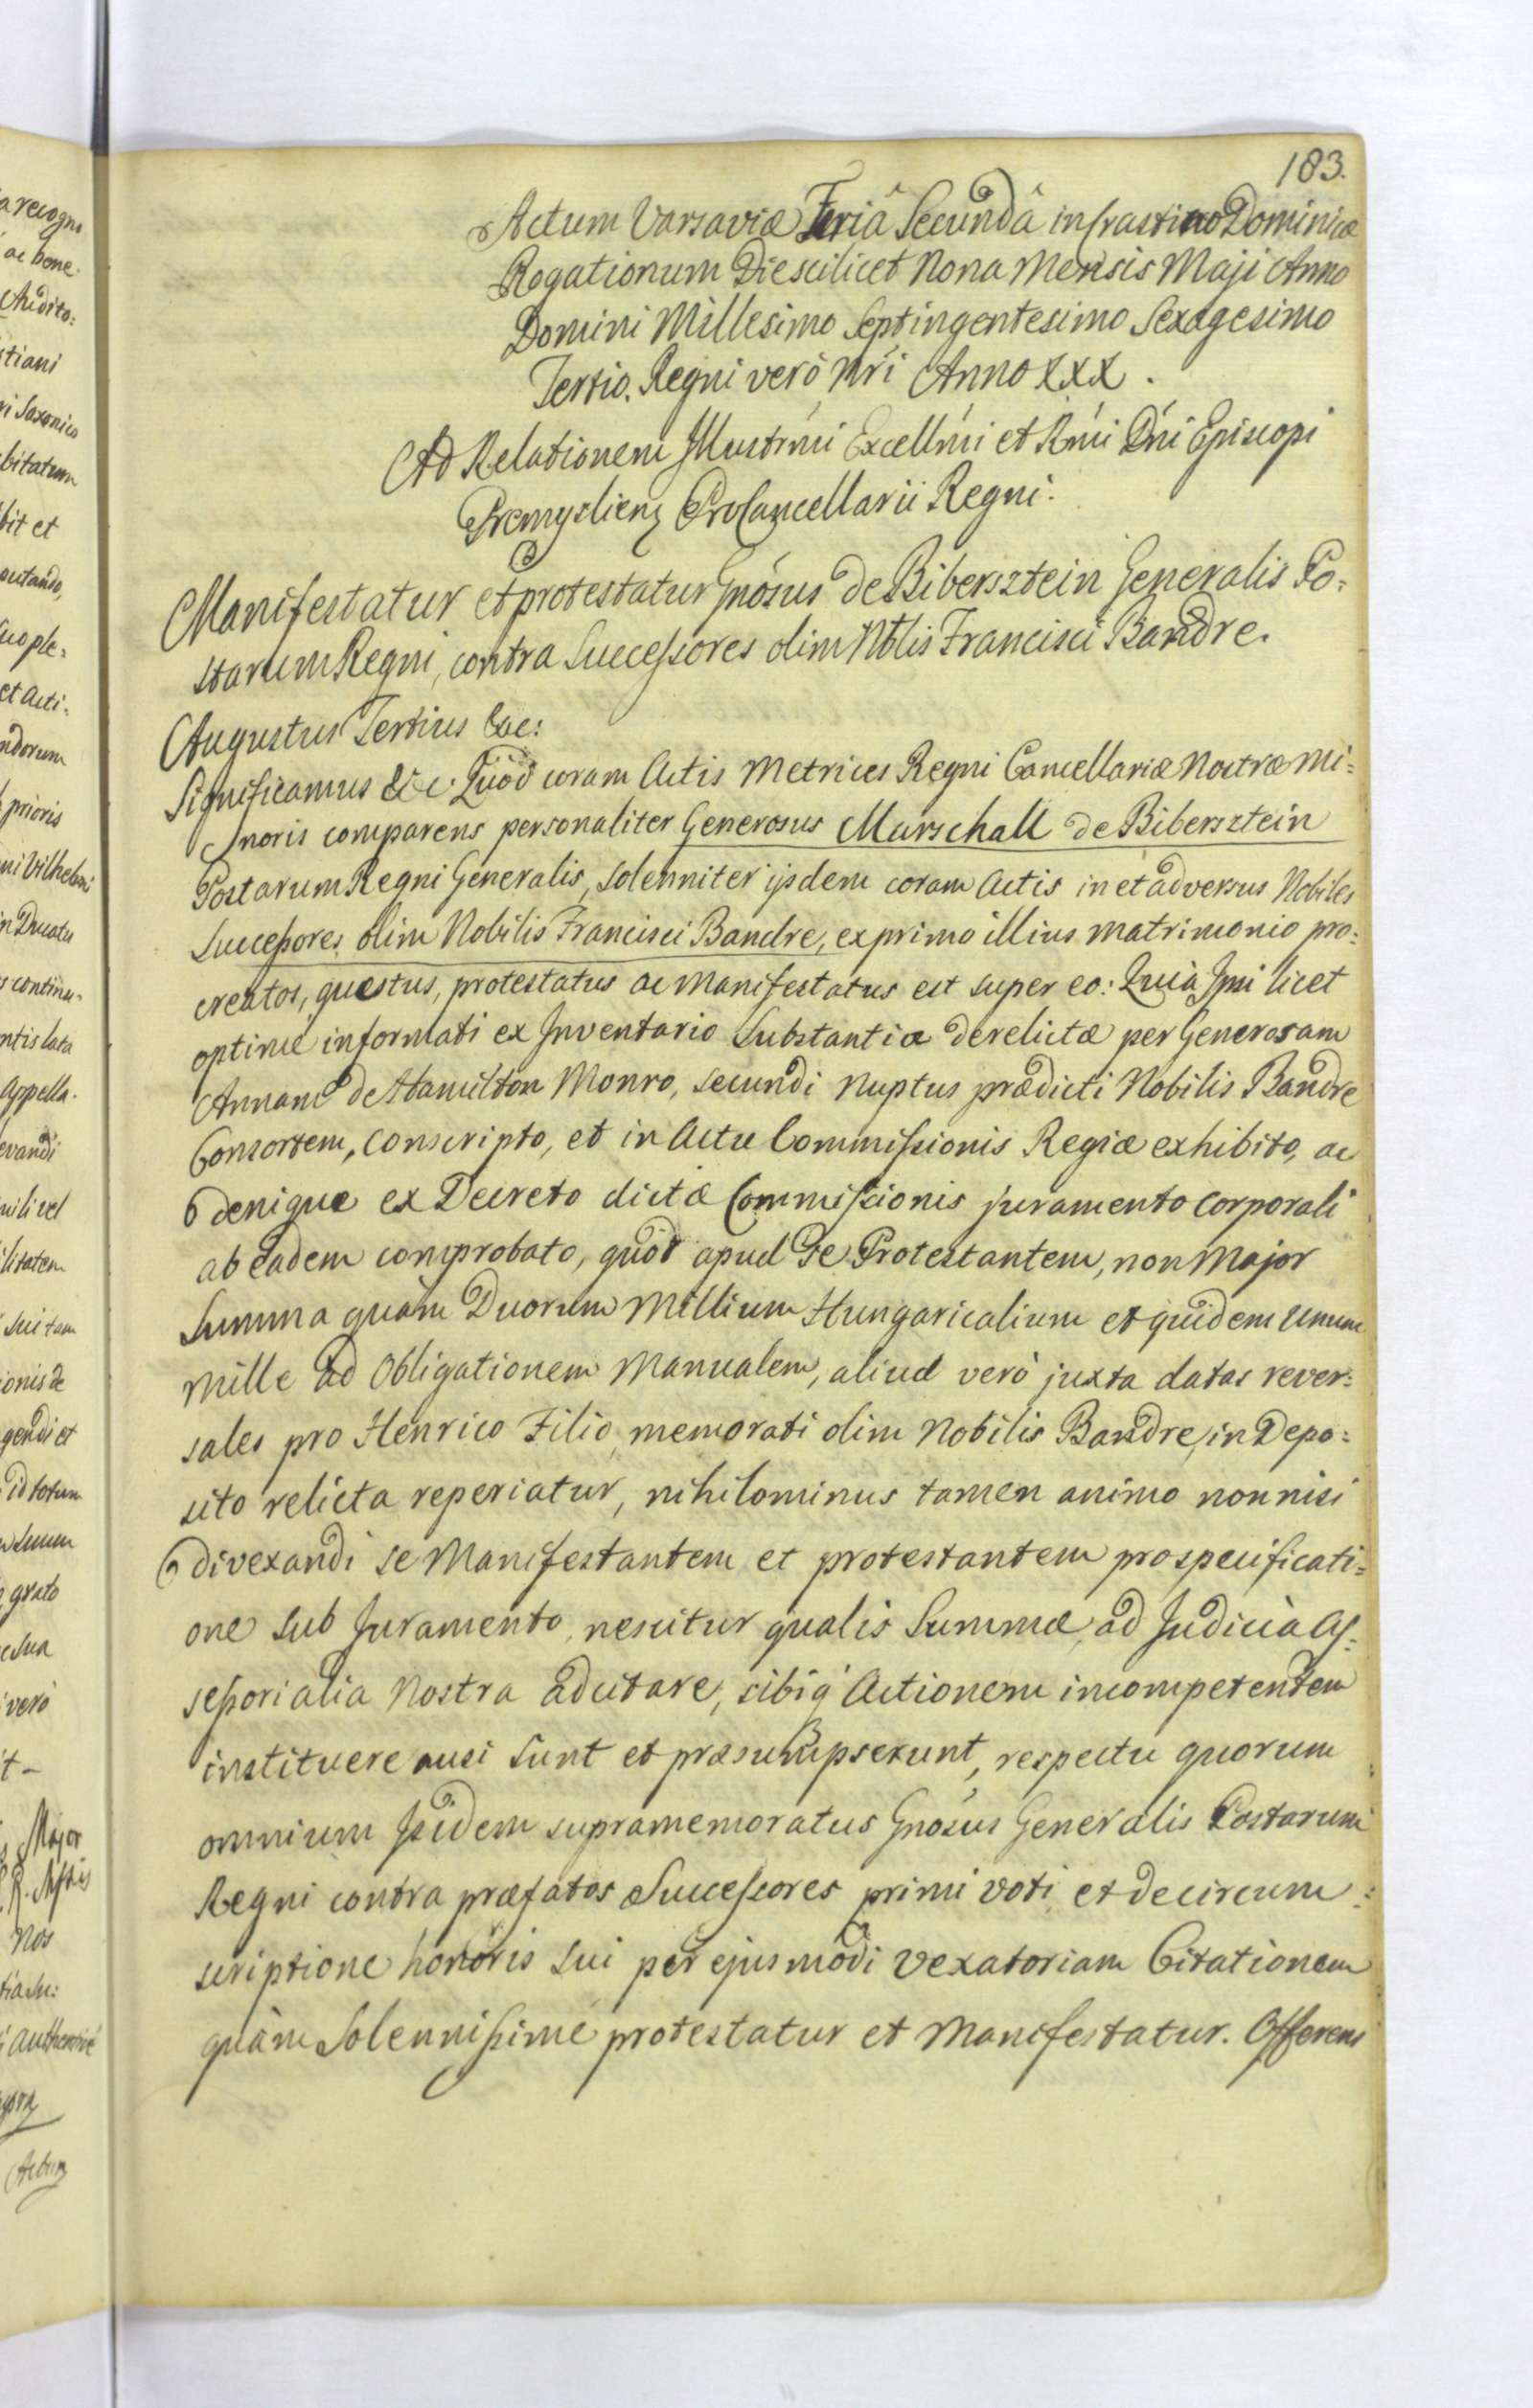 183.
Actum Varsaviæ Feriâ Secundâ in Crastino Dominicæ
Rogationum Die scilicet Nona Mensis Maji Anno
Domini Millesimo Septingentesimo Sexagesimo
Tertio. Regni verò Nri Anno XXX.
Ad Relationem Illustrmi Excellmi et Rmi Dni Episcopi
Premyslien ProCancellarii Regni.
Manifestatur et protestatur Gnosus de Bibersztein Generalis Po=
starum Regni, contra Successores olim Nblis Francisci Bandre.
Augustus Tertius &c:
Significamus &c. Quòd coram Actis Metrices Regni Cancellariæ Nostræ Mi=
noris comparens personaliter Generosus Marschall de Bibersztein
Postarum Regni Generalis, solenniter ijsdem coram Actis in et adversus Nobiles
Successores olim Nobilis Francisci Bandre, ex primo illius matrimonio pro=
creatos, questus, protestatus ac manifestatus est super eo: Quia Ipsi licet
optime informati ex Inventario Substantiæ derelictæ per Generosam
Annam de Hamilton Monro, secundi Nuptus prædicti Nobilis Bandre
Consortem, conscripto, et in Actu Commissionis Regiæ exhibito, ac
denique ex Decreto dictæ Commissionis juramento corporali
ab eadem comprobato, quòd apud se Protestantem, non Major
Summa quàm Duorum Millium Hungaricalium et quidem unum
Mille ad Obligationem Manualem, aliud verò juxta datas rever=
sales pro Henrico Filio memorati olim Nobilis Bandre, in Depo=
sito relicta reperiatur, nihilominus tamen animo non nisi
divexandi se Manifestantem et protestantem pro specificati=
one sub Juramento, nescitur qualis Summæ, ad Judicia As=
sessorialia Nostra adcitare, sibiq Actionem incompetentem
instituere ausi sunt et præsumpserunt, respectu quorum
omnium Isidem supramemoratus Gnosus Generalis Postarum
Regni contra præfatos Successores primi voti et de circum=
scriptione honoris sui per ejusmodi vexatoriam Citationem
quàm Solennissime protestatur et Manifestatur. Offerens